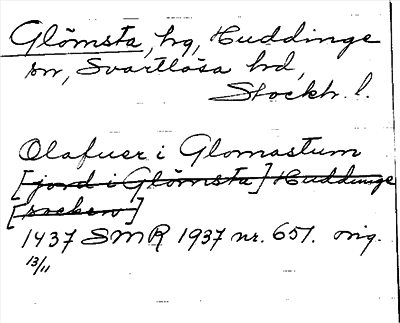 Glömsta, hg, Huddinge
sn, Svartlösa hd,
Stockh. l.
Olafuer i Glomastum
[jord i Glömsta] Huddinge
[socken]
1437 SMR 1937 nr. 651. orig.
13/11